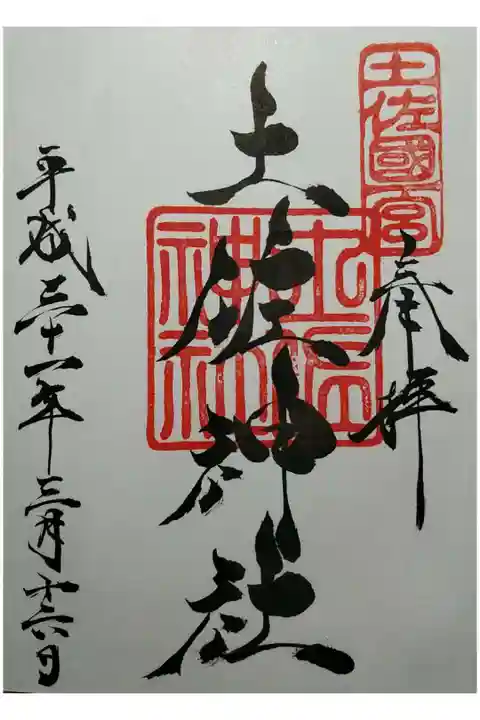 土佐國一宮
奉拝
土佐神社
土佐
神社
平成三十一年三月十六日